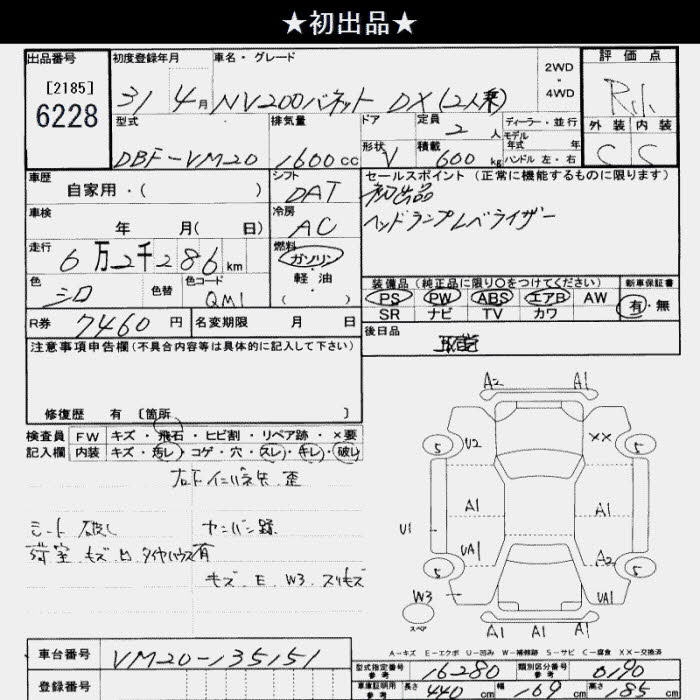 ★初出品★
出品番号 初度登録年月 車名・グレード 2WD・4WD 評価点
[2185]
6228
31 4月 NV200バネット DX (2人乗) R.1.
型式 排気量 ドア 定員 ディーラー・並行 外装 内装
DBF-VM20 1600cc 2人 モデル年式 年 C S
形状 V 積載 600kg ハンドル 左・右
車歴 シフト セールスポイント (正常に機能するものに限ります)
自家用・( ) DAT 初出品
車検 冷房 ヘッドランプレベライザー
年 月( 日) AC
走行 燃料
6万2千286km ガソリン
軽油
( )
色 色替 色コード
シロ QM1
装備品 (純正品に限り○をつけてください) 新車保証書
PS PW ABS エアB AW 有・無
SR ナビ TV カワ
R券 7460円 名変期限 月 日 後日品
注意事項申告欄(不具合内容等は具体的に記入して下さい) 取説
修復歴 有 [箇所 ]
検査員 FW キズ・飛石・ヒビ割・リペア跡・×要
記入欄 内装 キズ・汚レ・コゲ・穴・スレ・キレ・破レ
シート 破レ
荷室 キズ 凹 タイヤハウス有
キズ E W3 スリキズ
A2 A1
5 U2 XX 5
A1 A1
U1 UA1 A2
5 5
W3 UA1
スペア A1 A1 A1
A-キズ E-エクボ U-凹み W-補修跡 S-サビ C-腐食 XX-交換済
車台番号 VM20-135151
型式指定番号 参考 16280 類別区分番号 参考 0190
登録番号
車庫証明用 参考 長さ 440cm 幅 169cm 高さ 185cm